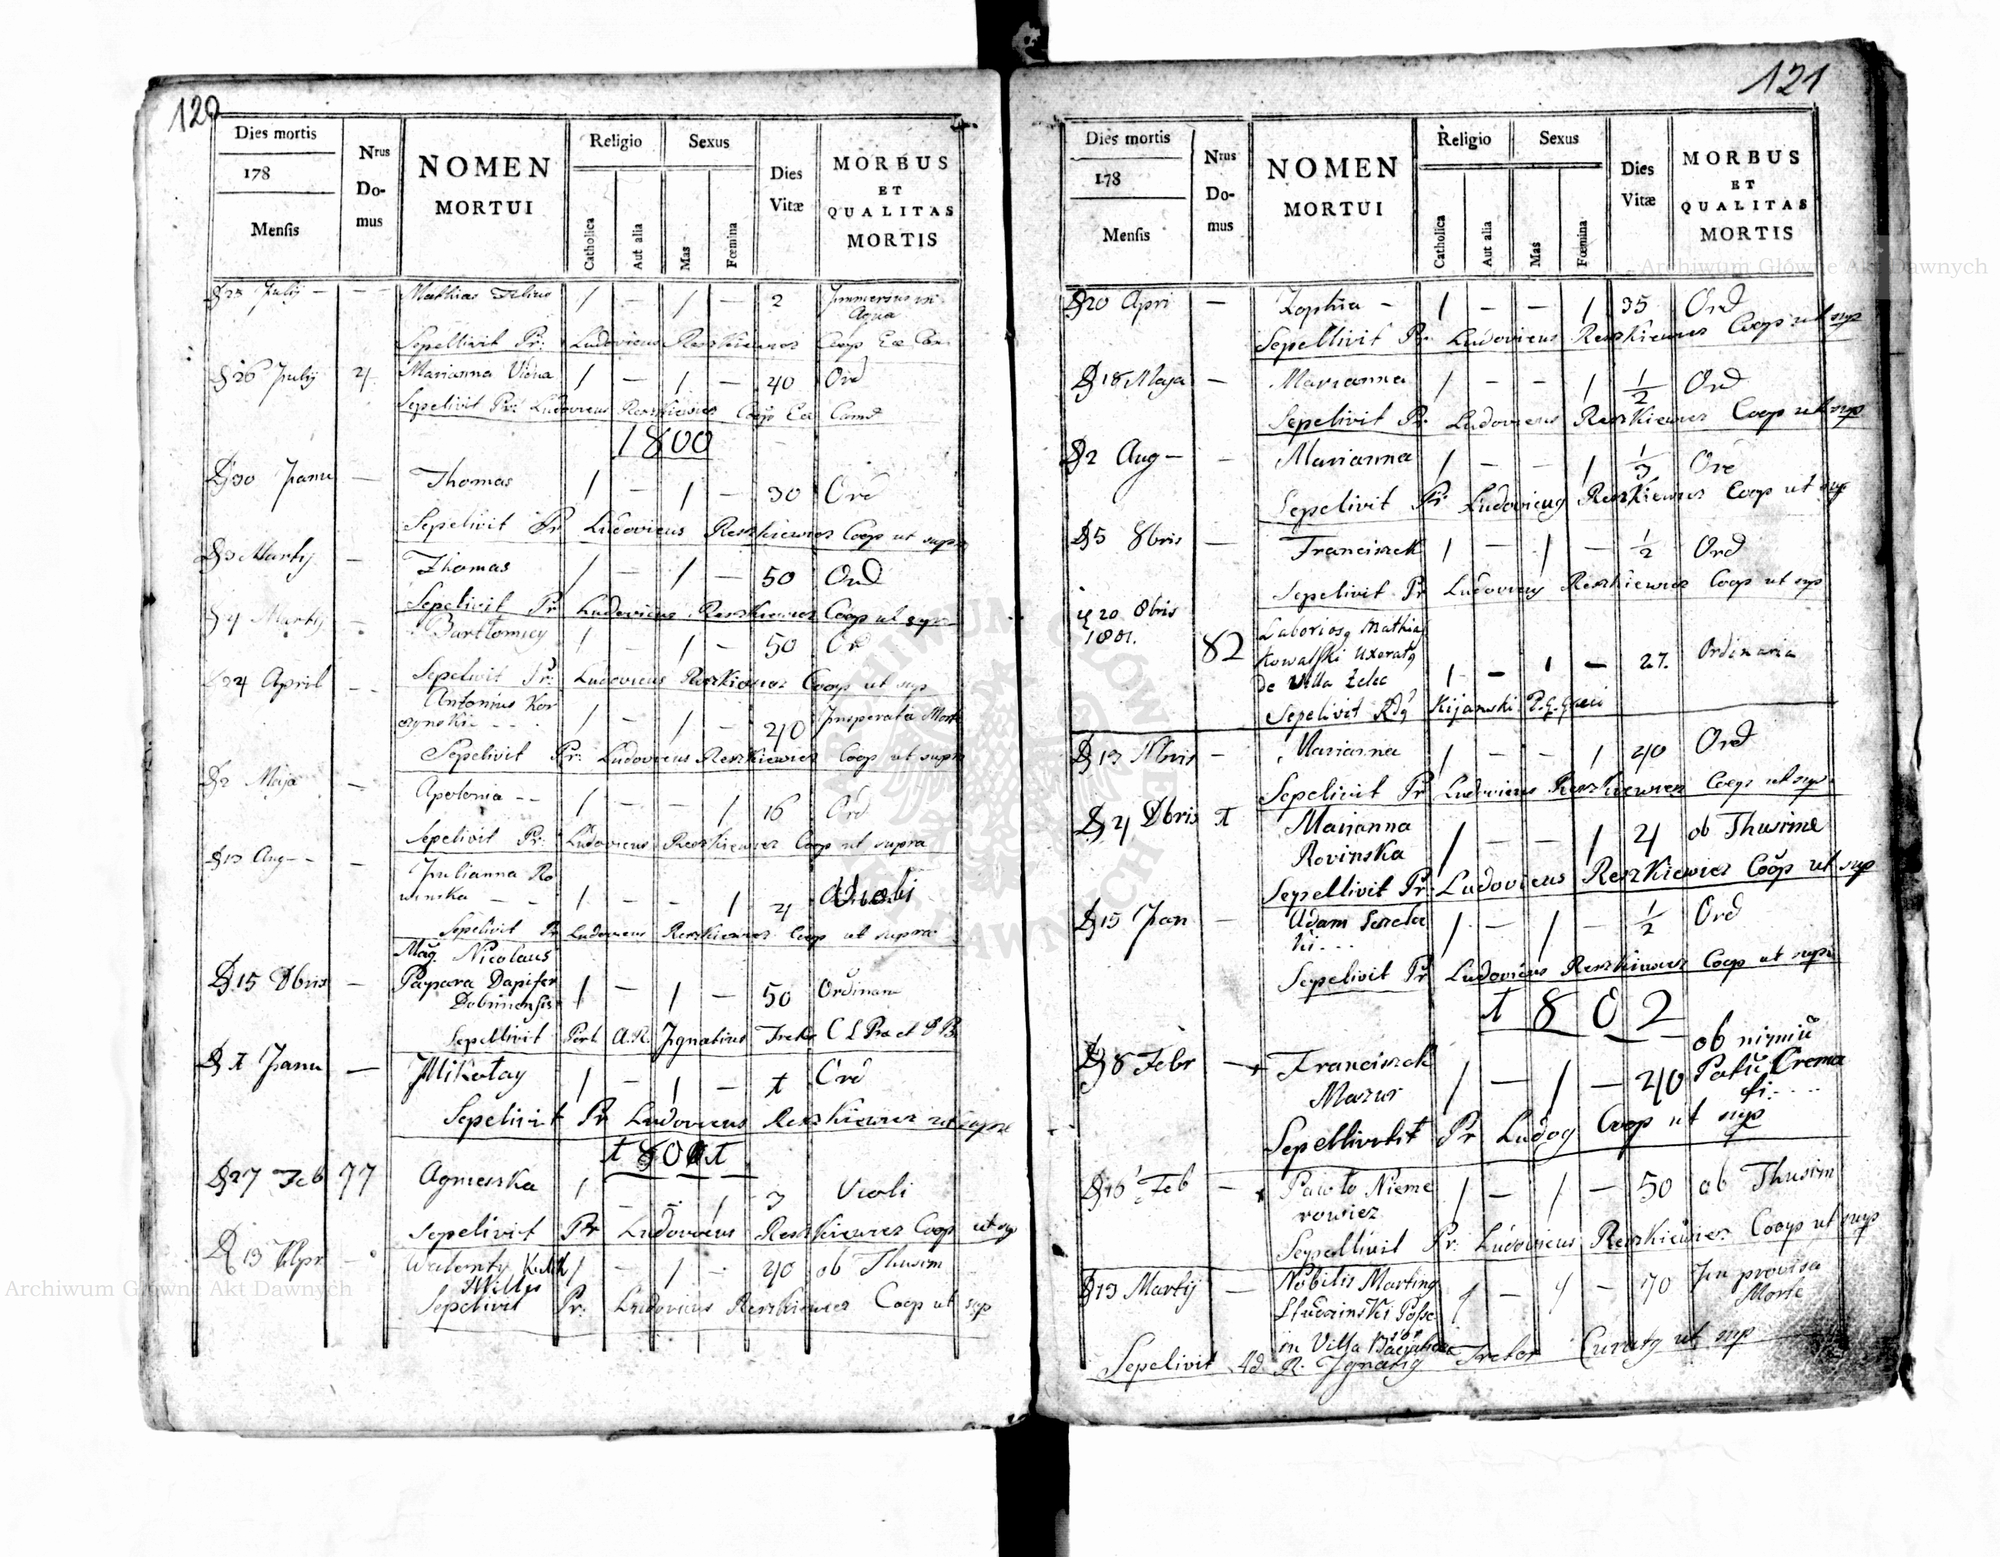 120
Dies mortis
178
Mensis
Nrus
Do-
mus
NOMEN
MORTUI
Religio
Catholica
Aut alia
Sexus
Mas
Fœmina
Dies
Vitæ
MORBUS
ET
QUALITAS
MORTIS
23 July — — — Mathias Filius / — / — 2 Immersus in
Aqua
Sepellivit Pr: Ludovicus Reszkiewicz Coop
26 July 4 Marianna Vidua / — / — 40 Ord
Sepelivit Pr: Ludovicus Reszkiewicz Coop
1800
30 Janu — Thomas / — / — 30 Ord
Sepelivit Pr Ludovicus Reszkiewicz Coop ut supra
3 Martij — Thomas / — / — 50 Ord
Sepelivit Pr Ludovicus Reszkiewicz Coop ut sup
4 Martij — Bartłomiey / — / — 50 Or
Sepelivit Pr: Ludovicus Reszkiewicz Coop ut sup
24 April — Antonius Kor
czynski / — / — 40 Insperata Morte
Sepelivit Pr: Ludovicus Reszkiewicz Coop ut supra
2 Maja — Apolonia — / — — / 16 Ord
Sepelivit Pr: Ludovicus Reszkiewicz Coop ut supra
13 Aug — — Julianna Ro
winska — — / — — / 4
Sepelivit Pr Ludovicus Reszkiewicz Coop ut supra
Mag. Nicolaus
15 Dbris — Papara Dapifer
Dobrinensis / — / — 50 Ordinari
Sepellivit A.R. Ignatius Treter
1 Janu — Mikołay / — / — 1 Ord
Sepelivit Pr Ludovicus Reszkiewicz ut supra
1801
27 Feb 77 Agnieszka / — — / 3 Violi
Sepelivit Pr Ludovicus Reszkiewicz Coop ut sup
13 Apr — Walenty
/ — / — 40 ob Thusim
Sepelivit Pr: Ludovicus Reszkiewicz Coop ut sup
121
Dies mortis
178
Mensis
Nrus
Do-
mus
NOMEN
MORTUI
Religio
Catholica
Aut alia
Sexus
Mas
Fœmina
Dies
Vitæ
MORBUS
ET
QUALITAS
MORTIS
20 Apri — Zophia — / — — / 35 Ord
Sepellivit Pr. Ludovicus Reszkiewicz Coop ut sup
18 Maja — Marianna / — — / 1/2 Ord
Sepellivit Pr. Ludovicus Reszkiewicz Coop ut sup
2 Aug — — Marianna / — — / 1/3 Ord
Sepelivit Pr Ludovicus Reszkiewicz Coop ut sup
5 8bris — Franciszek / — / — 1/2 Ord
Sepelivit Pr Ludovicus Reszkiewicz Coop ut sup
20 8bris
1801. 82 Laborios9 Mathias
Kowalski Uxorat9
de Villa Zelec / — / — 27. Ordinaria
Sepelivit Kijanski
13 Nbris — Marianna / — — / 40 Ord
Sepelivit Pr Ludovicus Reszkiewicz Coop ut sup
4 Dbris 1 Marianna
Rovinska / — — / 4 ob Thusime
Sepellivit Pr: Ludovicus Reszkiewicz Coop ut sup
15 Jan — Adam / — / — 1/2 Ord
Sepelivit Pr Ludovicus Reszkiewicz Coop ut supr
1802
8 Febr — Franciszek
Mazur / — / — 40 ob nimiu
Potu Crema
ti
Sepellivitit Pr Ludog Coop ut sup
16 Feb — Pawło Nieme
rowicz / — / — 50 ob Thusim
Sepellivit Pr: Ludovicus Reszkiewicz Coop ut sup
13 Martij — Nobilis Martin9
Studzinski Posse
sor
in Villa / — / — 70 Inprovisa
Morte
Sepelivit Ad. R. Ignatiy Treter Curat9 ut sup
Archiwum Główne Akt Dawnych
Archiwum Główne Akt Dawnych
ARCHIWUM GŁÓWNE AKT DAWNYCH